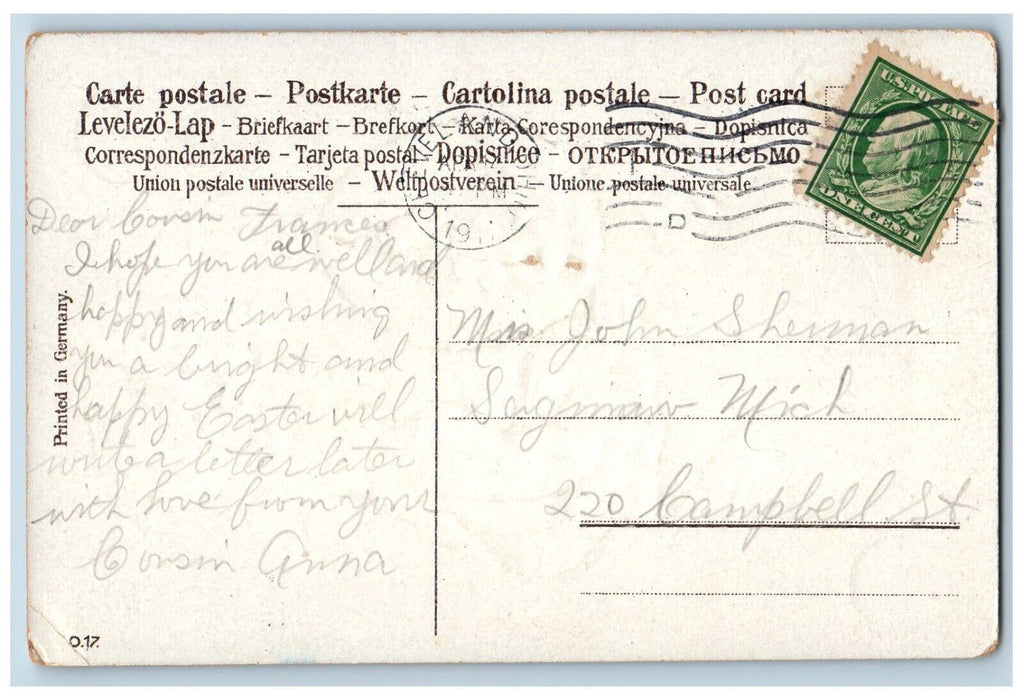 Carte postale – Postkarte – Cartolina postale – Post card
Levelezö-Lap – Briefkaart – Brefkort – Karta Corespondencyjna – Dopisnica
Correspondenzkarte – Tarjeta postal – Dopisnice – ОТКРЫТОЕ ПИСЬМО
Union postale universelle – Weltpostverein – Unione postale universale.
U.S. POSTAGE
ONE CENT
19
D
Dear Cousin Frances
I hope you are all well and
happy and wishing
you a bright and
happy Easter will
write a letter later
with love from your
Cousin Anna
Mrs John Sherman
Saginaw Mich
220 Campbell St.
Printed in Germany.
O.17.